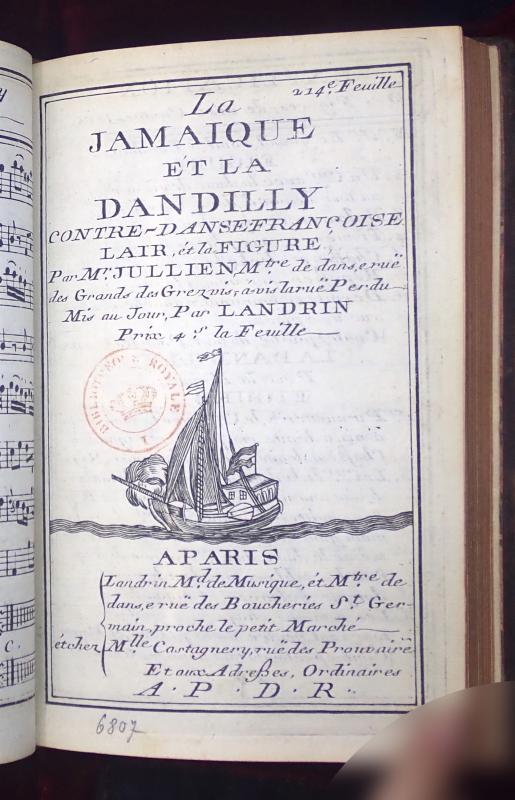 214.e Feuille
La
JAMAIQUE
ET LA
DANDILLY
CONTRE-DANSE FRANÇOISE
LAIR, ét la FIGURE,
Par Mr. JULLIEN, Mtre de dans,e ruë
des Grands des Grezvis, ávis laruë Perdu
Mis au Jour, Par LANDRIN
Prix 4 s. la Feuille
BIBLIOTHEQUE ROYALE
A PARIS
Landrin Md. de Musique, ét Mtre de
dans,e ruë des Boucheries St. Ger-
main, proche le petit Marché
ét chez Mlle Castagnery, ruë des Prouvaire
Et aux Adreſses, Ordinaires
A. P. D. R.
6807
C.